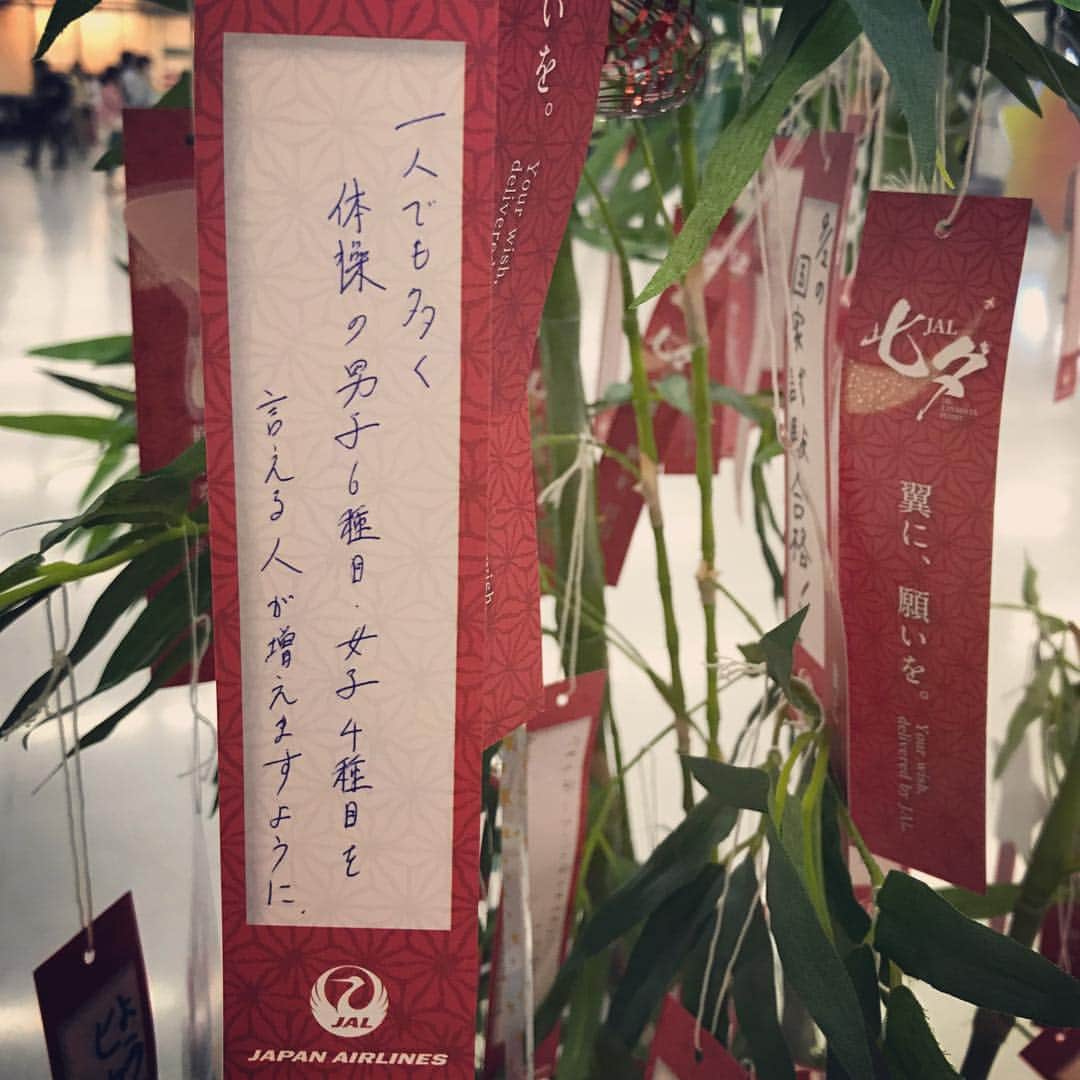 一人でも多く
体操の男子6種目・女子4種目を
言える人が増えますように.
JAL
JAPAN AIRLINES
いを。
Your wish,
国家試験合格!
JAL
七夕
翼に、願いを。
Your wish
delivered by JAL